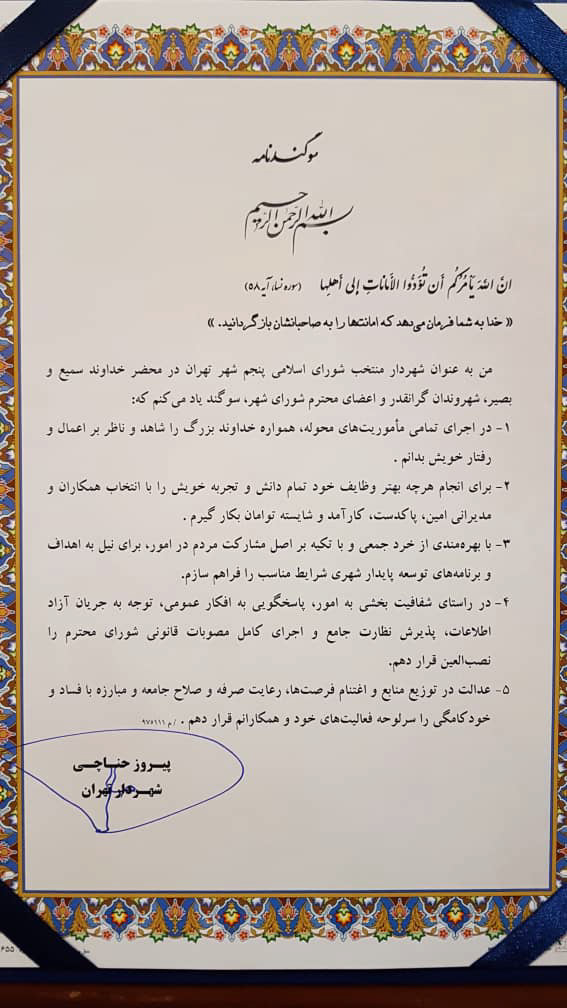 سوگندنامه
بسم الله الرحمن الرحیم
انَّ اللهَ یَأمُرُکُم أَن تُؤَدُّوا الأماناتِ إلی أهلِها (سوره نساء آیه ۵۸)
« خدا به شما فرمان می‌دهد که امانت‌ها را به صاحبانشان بازگردانید. »
من به عنوان شهردار منتخب شورای اسلامی پنجم شهر تهران در محضر خداوند سمیع و
بصیر، شهروندان گرانقدر و اعضای محترم شورای شهر، سوگند یاد می‌کنم که:
۱- در اجرای تمامی مأموریت‌های محوله، همواره خداوند بزرگ را شاهد و ناظر بر اعمال و
رفتار خویش بدانم .
۲- برای انجام هرچه بهتر وظایف خود تمام دانش و تجربه خویش را با انتخاب همکاران و
مدیرانی امین، پاکدست، کارآمد و شایسته توامان بکار گیرم .
۳- با بهره‌مندی از خرد جمعی و با تکیه بر اصل مشارکت مردم در امور، برای نیل به اهداف
و برنامه‌های توسعه پایدار شهری شرایط مناسب را فراهم سازم.
۴- در راستای شفافیت بخشی به امور، پاسخگویی به افکار عمومی، توجه به جریان آزاد
اطلاعات، پذیرش نظارت جامع و اجرای کامل مصوبات قانونی شورای محترم را
نصب‌العین قرار دهم.
۵- عدالت در توزیع منابع و اغتنام فرصت‌ها، رعایت صرفه و صلاح جامعه و مبارزه با فساد و
خودکامگی را سرلوحه فعالیت‌های خود و همکارانم قرار دهم . / م ۹۷۵۱۱۱
پیروز حناچی
شهردار تهران